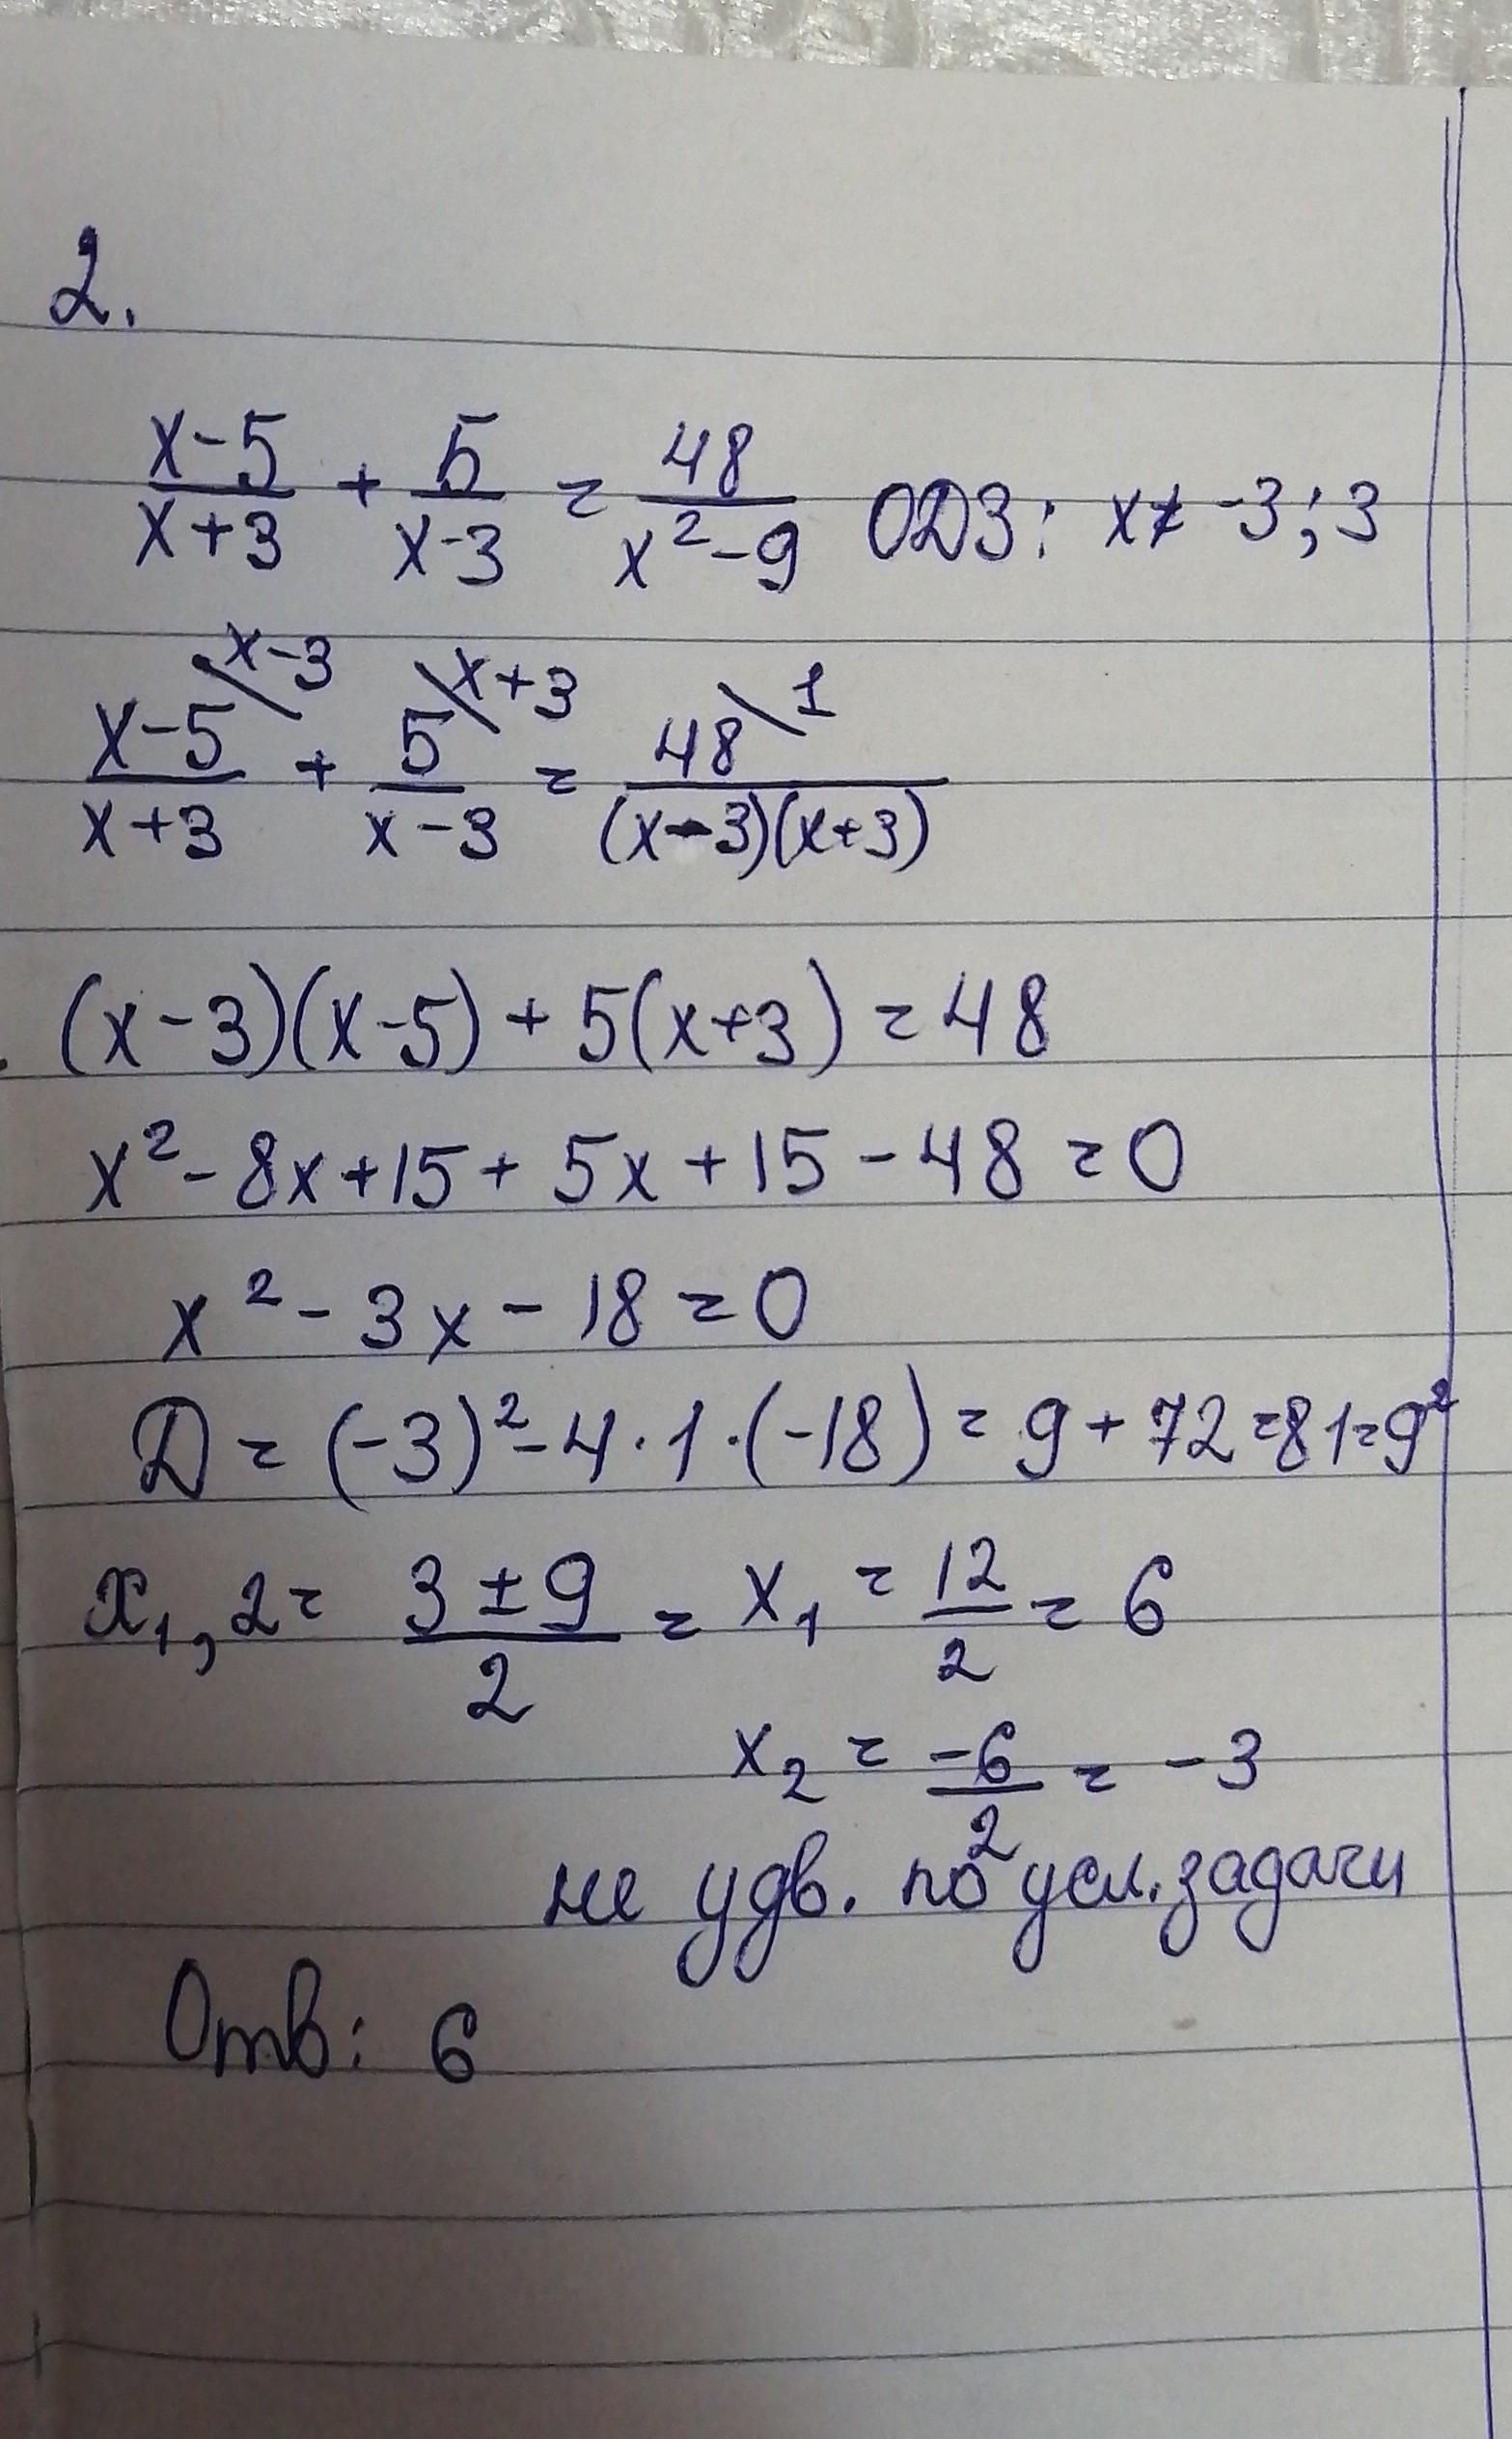 2.
x-5/x+3 + 5/x-3 = 48/x²-9 ОДЗ: x≠ -3; 3
x-5\x-3/x+3 + 5\x+3/x-3 = 48\1/(x-3)(x+3)
(x-3)(x-5) + 5(x+3) = 48
x²-8x+15+5x+15-48=0
x²-3x-18=0
D = (-3)²-4·1·(-18) = 9+72=81=9²
x₁,₂= 3±9/2 = x₁ = 12/2 = 6
x₂ = -6/2 = -3
не удв. по усл. задачи
Отв: 6